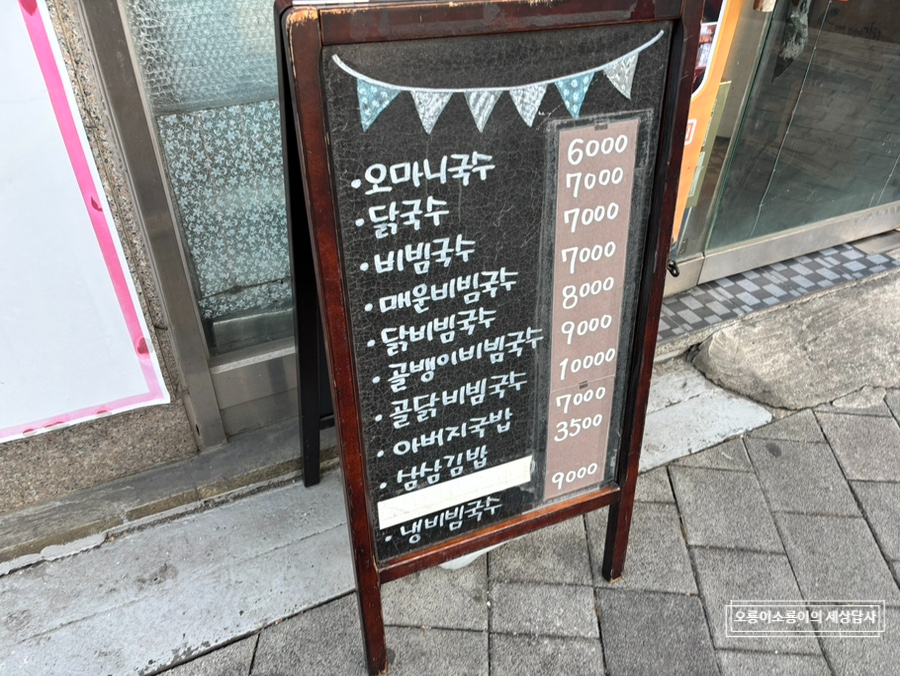 •오마니국수 6000
•닭국수 7000
•비빔국수 7000
•매운비빔국수 7000
•닭비빔국수 8000
•골뱅이비빔국수 9000
•골닭비빔국수 10000
•아버지국밥 7000
•삼삼김밥 3500
•냉비빔국수 9000
오룡이소룡이의 세상답사